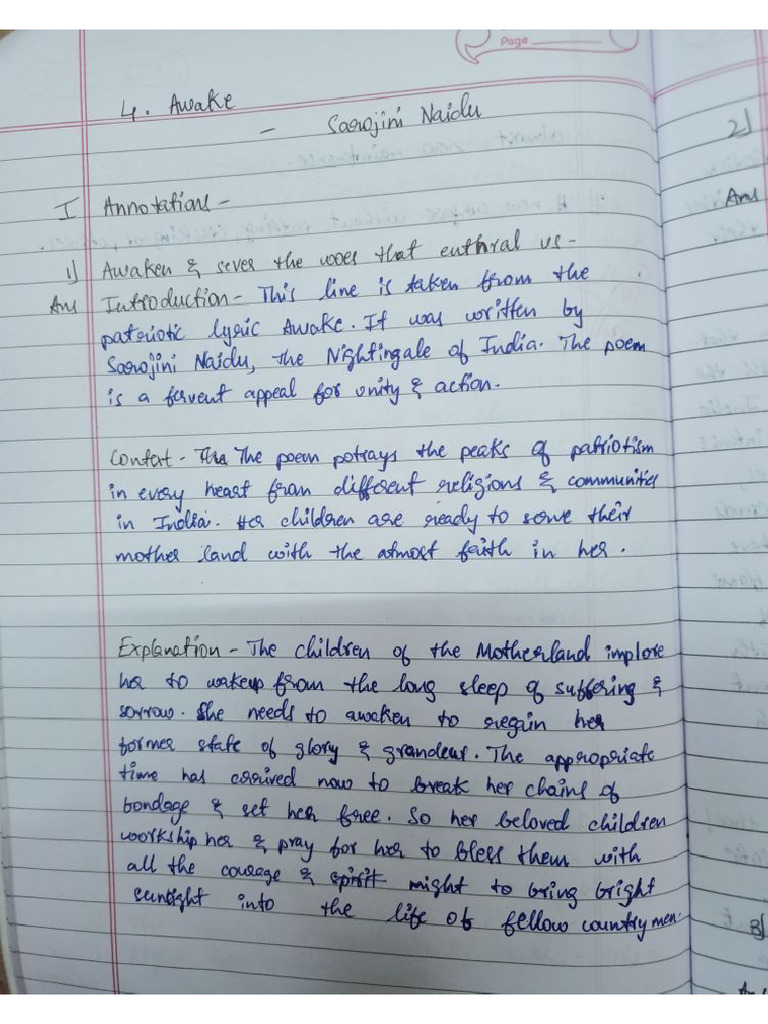 Page
4. Awake
- Sarojini Naidu
I Annotations -
1) Awaken & sever the woes that enthral us -
Ans Introduction - This line is taken from the
patriotic lyric Awake. It was written by
Sarojini Naidu, the Nightingale of India. The poem
is a fervent appeal for unity & action.
Context - The poem potrays the peaks of patriotism
in every heart from different religions & communities
in India. Her children are ready to serve their
mother land with the atmost faith in her.
Explanation - The children of the Motherland implore
her to wakeup from the long sleep of suffering &
sorrow. She needs to awaken to regain her
former state of glory & grandeur. The appropriate
time has arrived now to break her chains of
bondage & set her free. So her beloved children
workship her & pray for her to bless them with
all the courage & spirit might to bring bright
sunlight into the life of fellow countrymen.
2)
Ans
3)